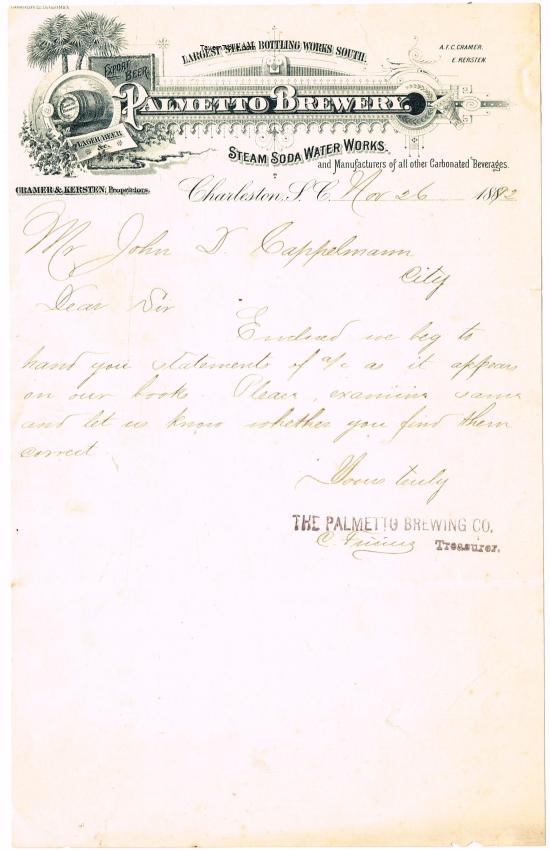 LARGEST STEAM BOTTLING WORKS SOUTH.
A.F.C. CRAMER.
E. KERSTEN.
EXPORT BEER
PALMETTO BREWERY.
LAGER BEER &c.
STEAM SODA WATER WORKS.
and Manufacturers of all other Carbonated Beverages.
CRAMER & KERSTEN, Proprietors.
Charleston, S.C. Nov 26 188
Mr John D. Cappelmann
City
Dear Sir
Enclosed we beg to
hand you statements of a/c as it appears
on our books. Please, examine same
and let us know whether you find them
correct
Yours truly
THE PALMETTO BREWING CO.
C. Treasurer.